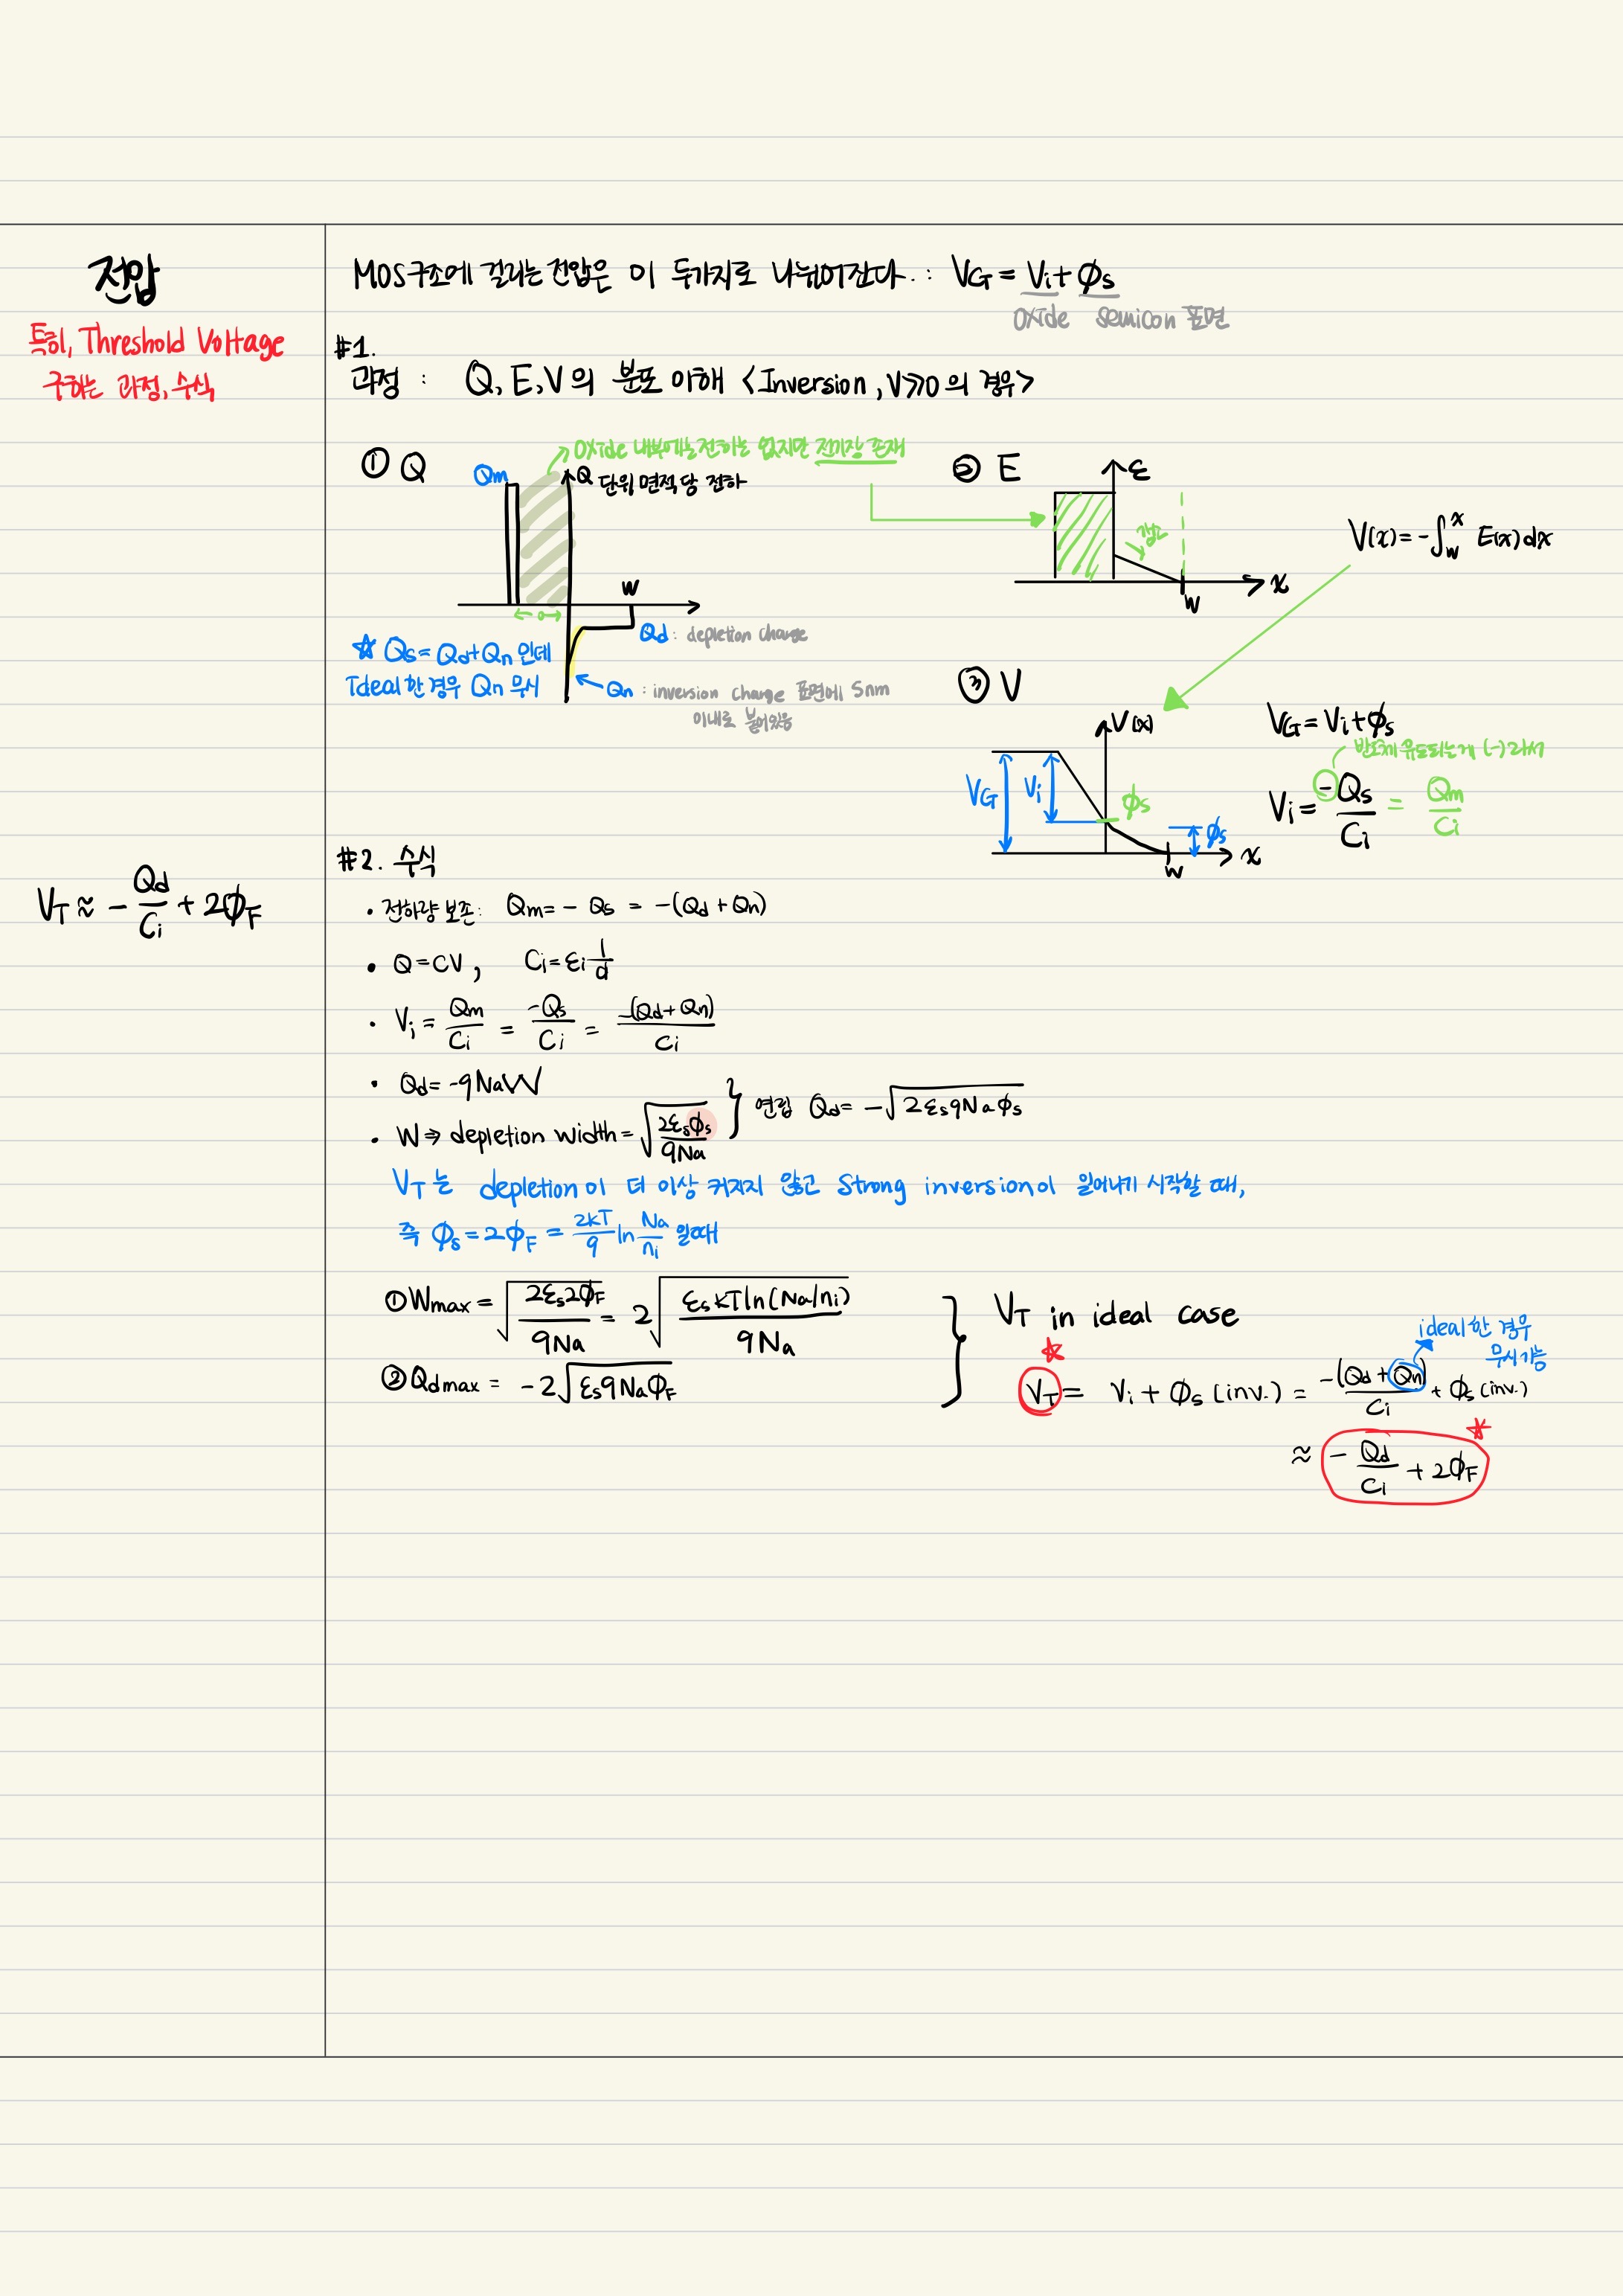 전압
특히, Threshold Voltage
구하는 과정, 수식
V_T ≈ - Qd/Ci + 2ϕ_F
MOS구조에 걸리는 전압은 이 두가지로 나뉘어진다. : V_G = Vi + ϕs
oxide semicon 표면
#1.
과정 : Q, E, V 의 분포 이해 <Inversion, V≫0 의 경우>
① Q
oxide 내부에는 전하는 없지만 전기장 존재
Qm
Q 단위 면적당 전하
W
Qd : depletion charge
☆ Qs = Qd+Qn 인데
Ideal한 경우 Qn 무시
Qn : inversion charge 표면에 5nm
이내로 붙어있음
② E
ε
감소
x
W
V(x) = -∫_W^x E(x)dx
③ V
V(x)
V_G
Vi
ϕs
ϕs
W
x
V_G = Vi + ϕs
반도체 유도되는게 (-)라서
Vi = -Qs/Ci = Qm/Ci
#2. 수식
• 전하량 보존: Qm = - Qs = -(Qd + Qn)
• Q = CV , Ci = εi 1/d
• Vi = Qm/Ci = -Qs/Ci = -(Qd+Qn)/Ci
• Qd = -qNaW
• W ⇒ depletion width = √(2εsϕs/qNa)
연립 Qd = -√(2εsqNaϕs)
V_T 는 depletion이 더 이상 커지지 않고 Strong inversion이 일어나기 시작할 때,
즉 ϕs = 2ϕ_F = 2kT/q ln Na/ni 일때
① Wmax = √(2εs2ϕ_F/qNa) = 2√(εskTln(Na/ni)/qNa)
② Qdmax = -2√(εsqNaϕ_F)
V_T in ideal case
V_T = Vi + ϕs (inv.) = -(Qd + Qn)/Ci + ϕs (inv.)
ideal한 경우
무시가능
≈ - Qd/Ci + 2ϕ_F